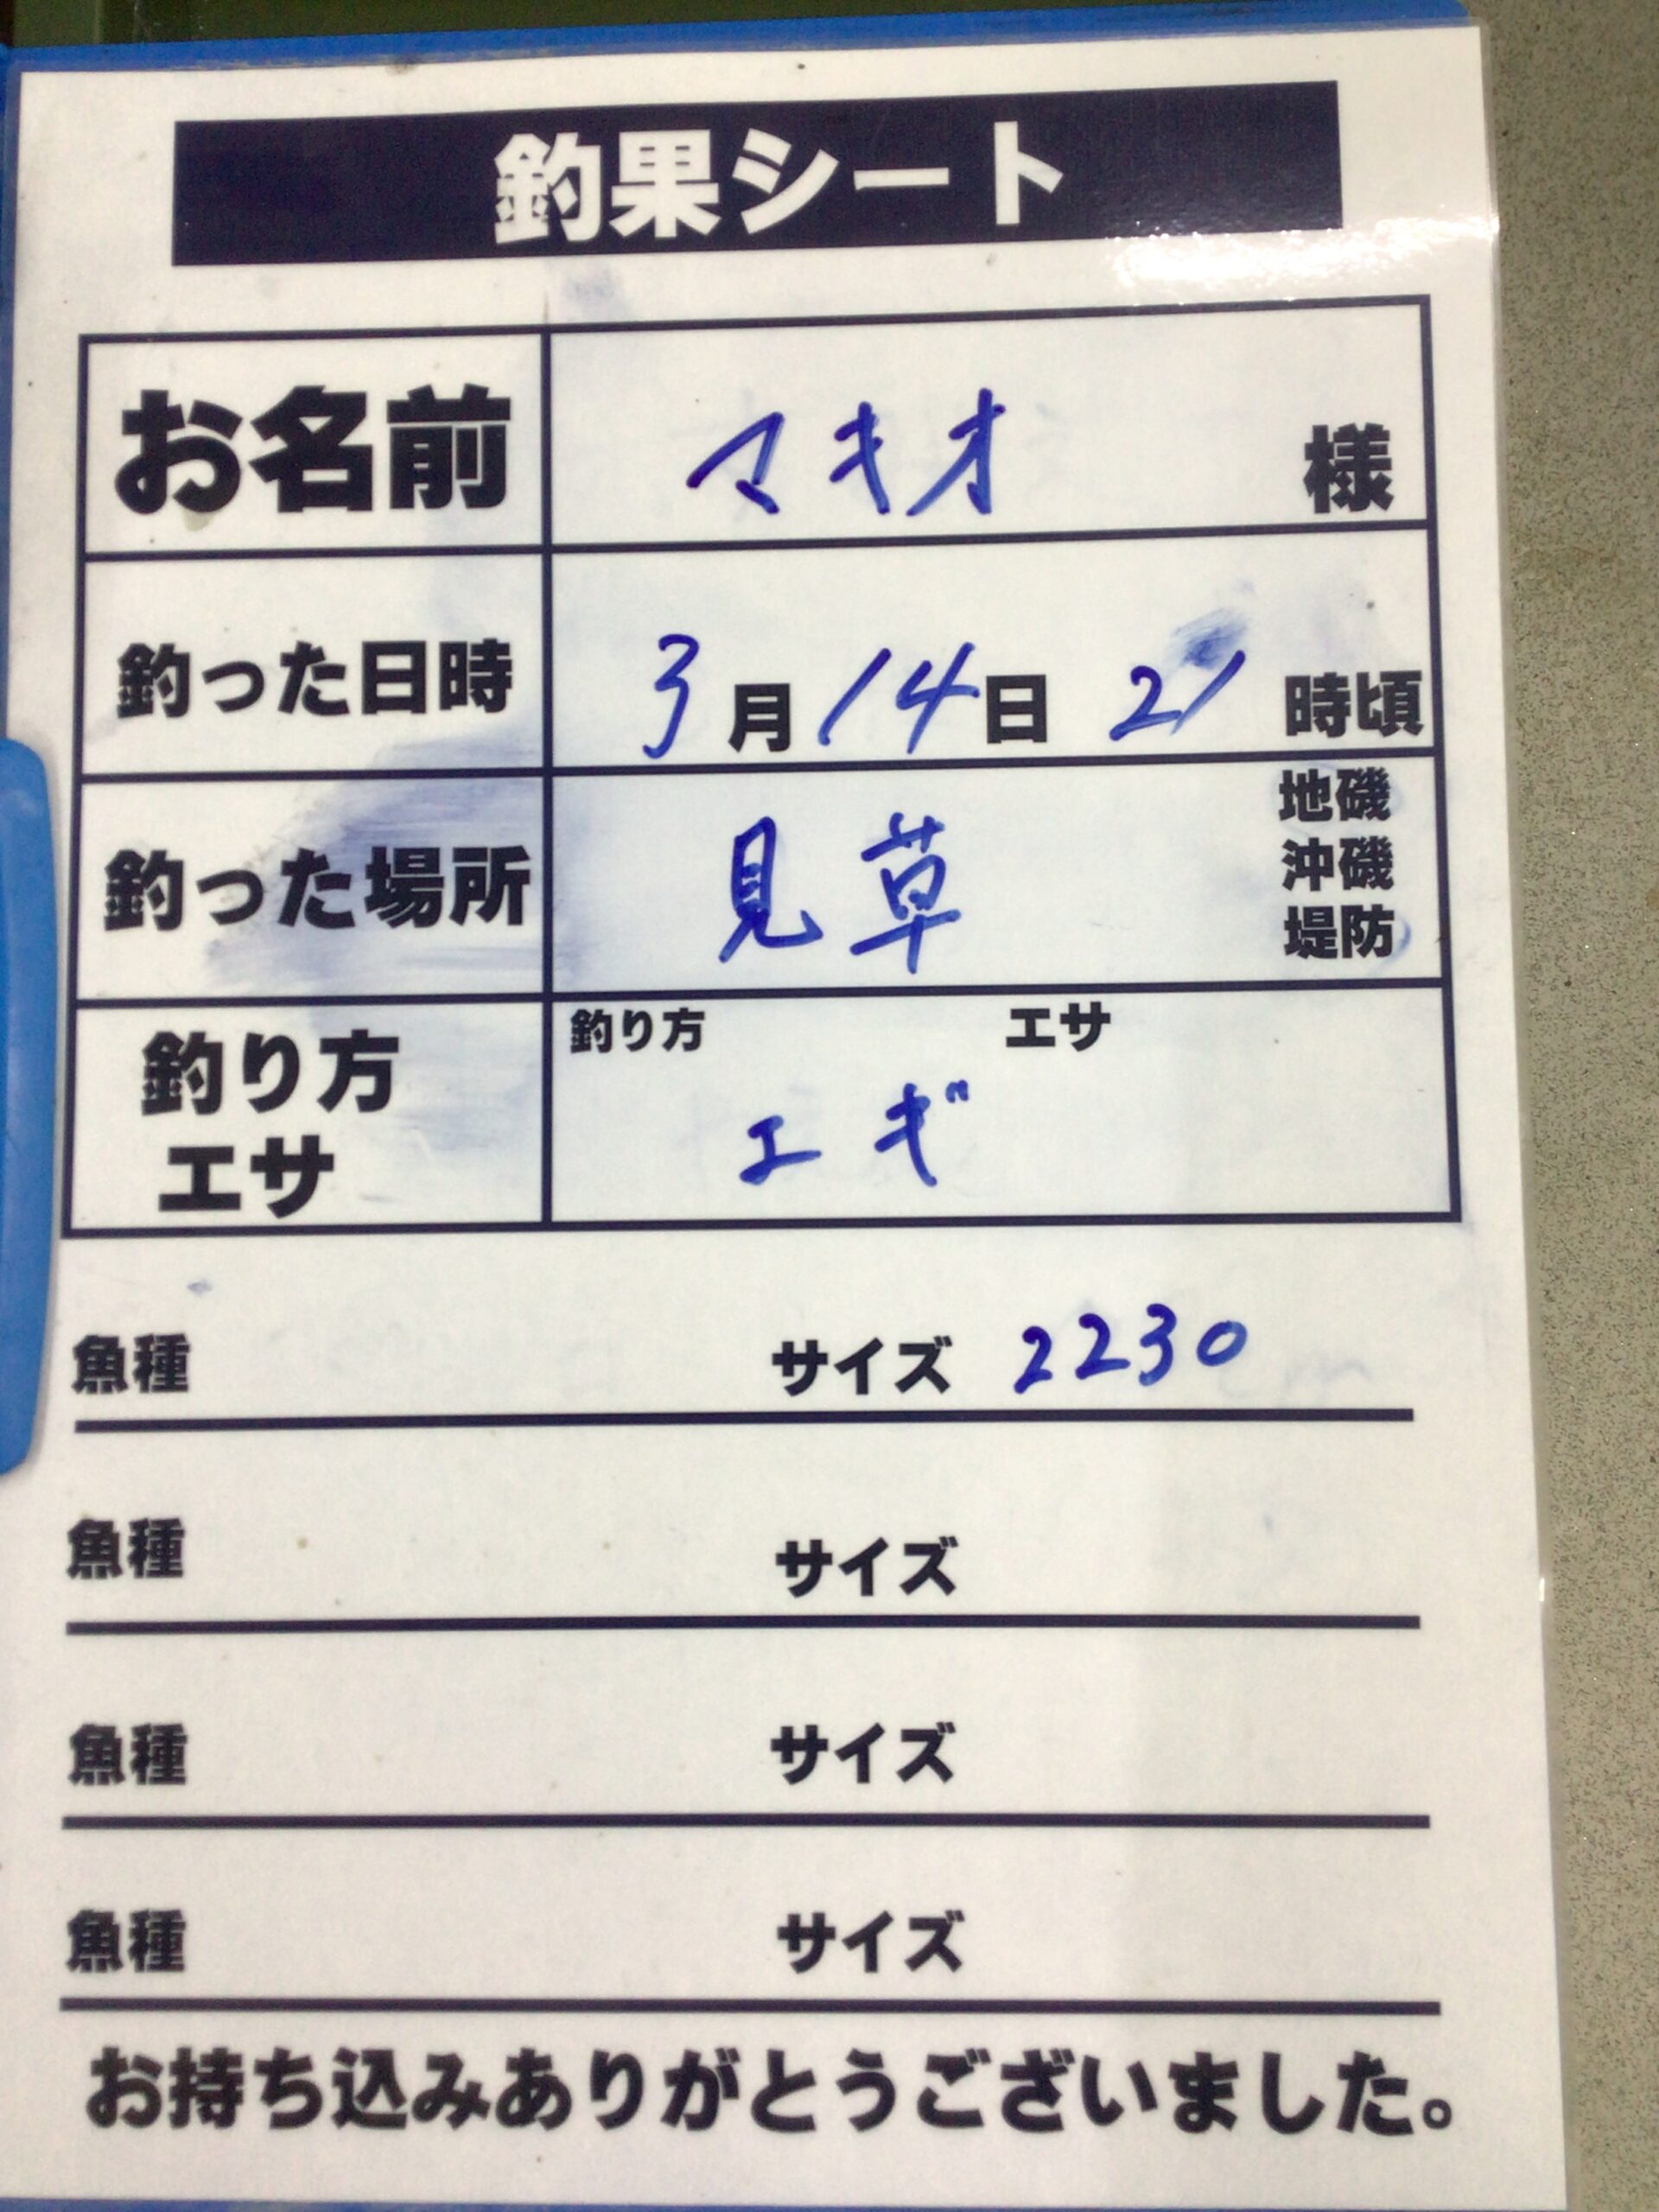 釣果シート
お名前 マキオ 様
釣った日時 3月14日 21時頃
釣った場所 見草 地磯
沖磯
堤防
釣り方 エサ
釣り方
エサ
エギ
魚種 サイズ 2230
魚種 サイズ
魚種 サイズ
魚種 サイズ
お持ち込みありがとうございました。